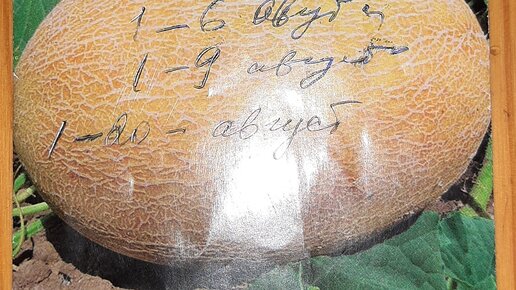 1 - 6 август
1 - 9 август
1 - 20 - август